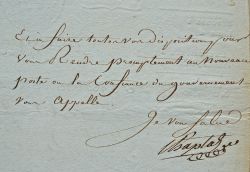 Et à faire toutes vos dispositions pour
vous Rendre promptement au Nouveau
poste ou la Confiance du gouvernement
vous Appelle.
Je vous salue
Chaptal